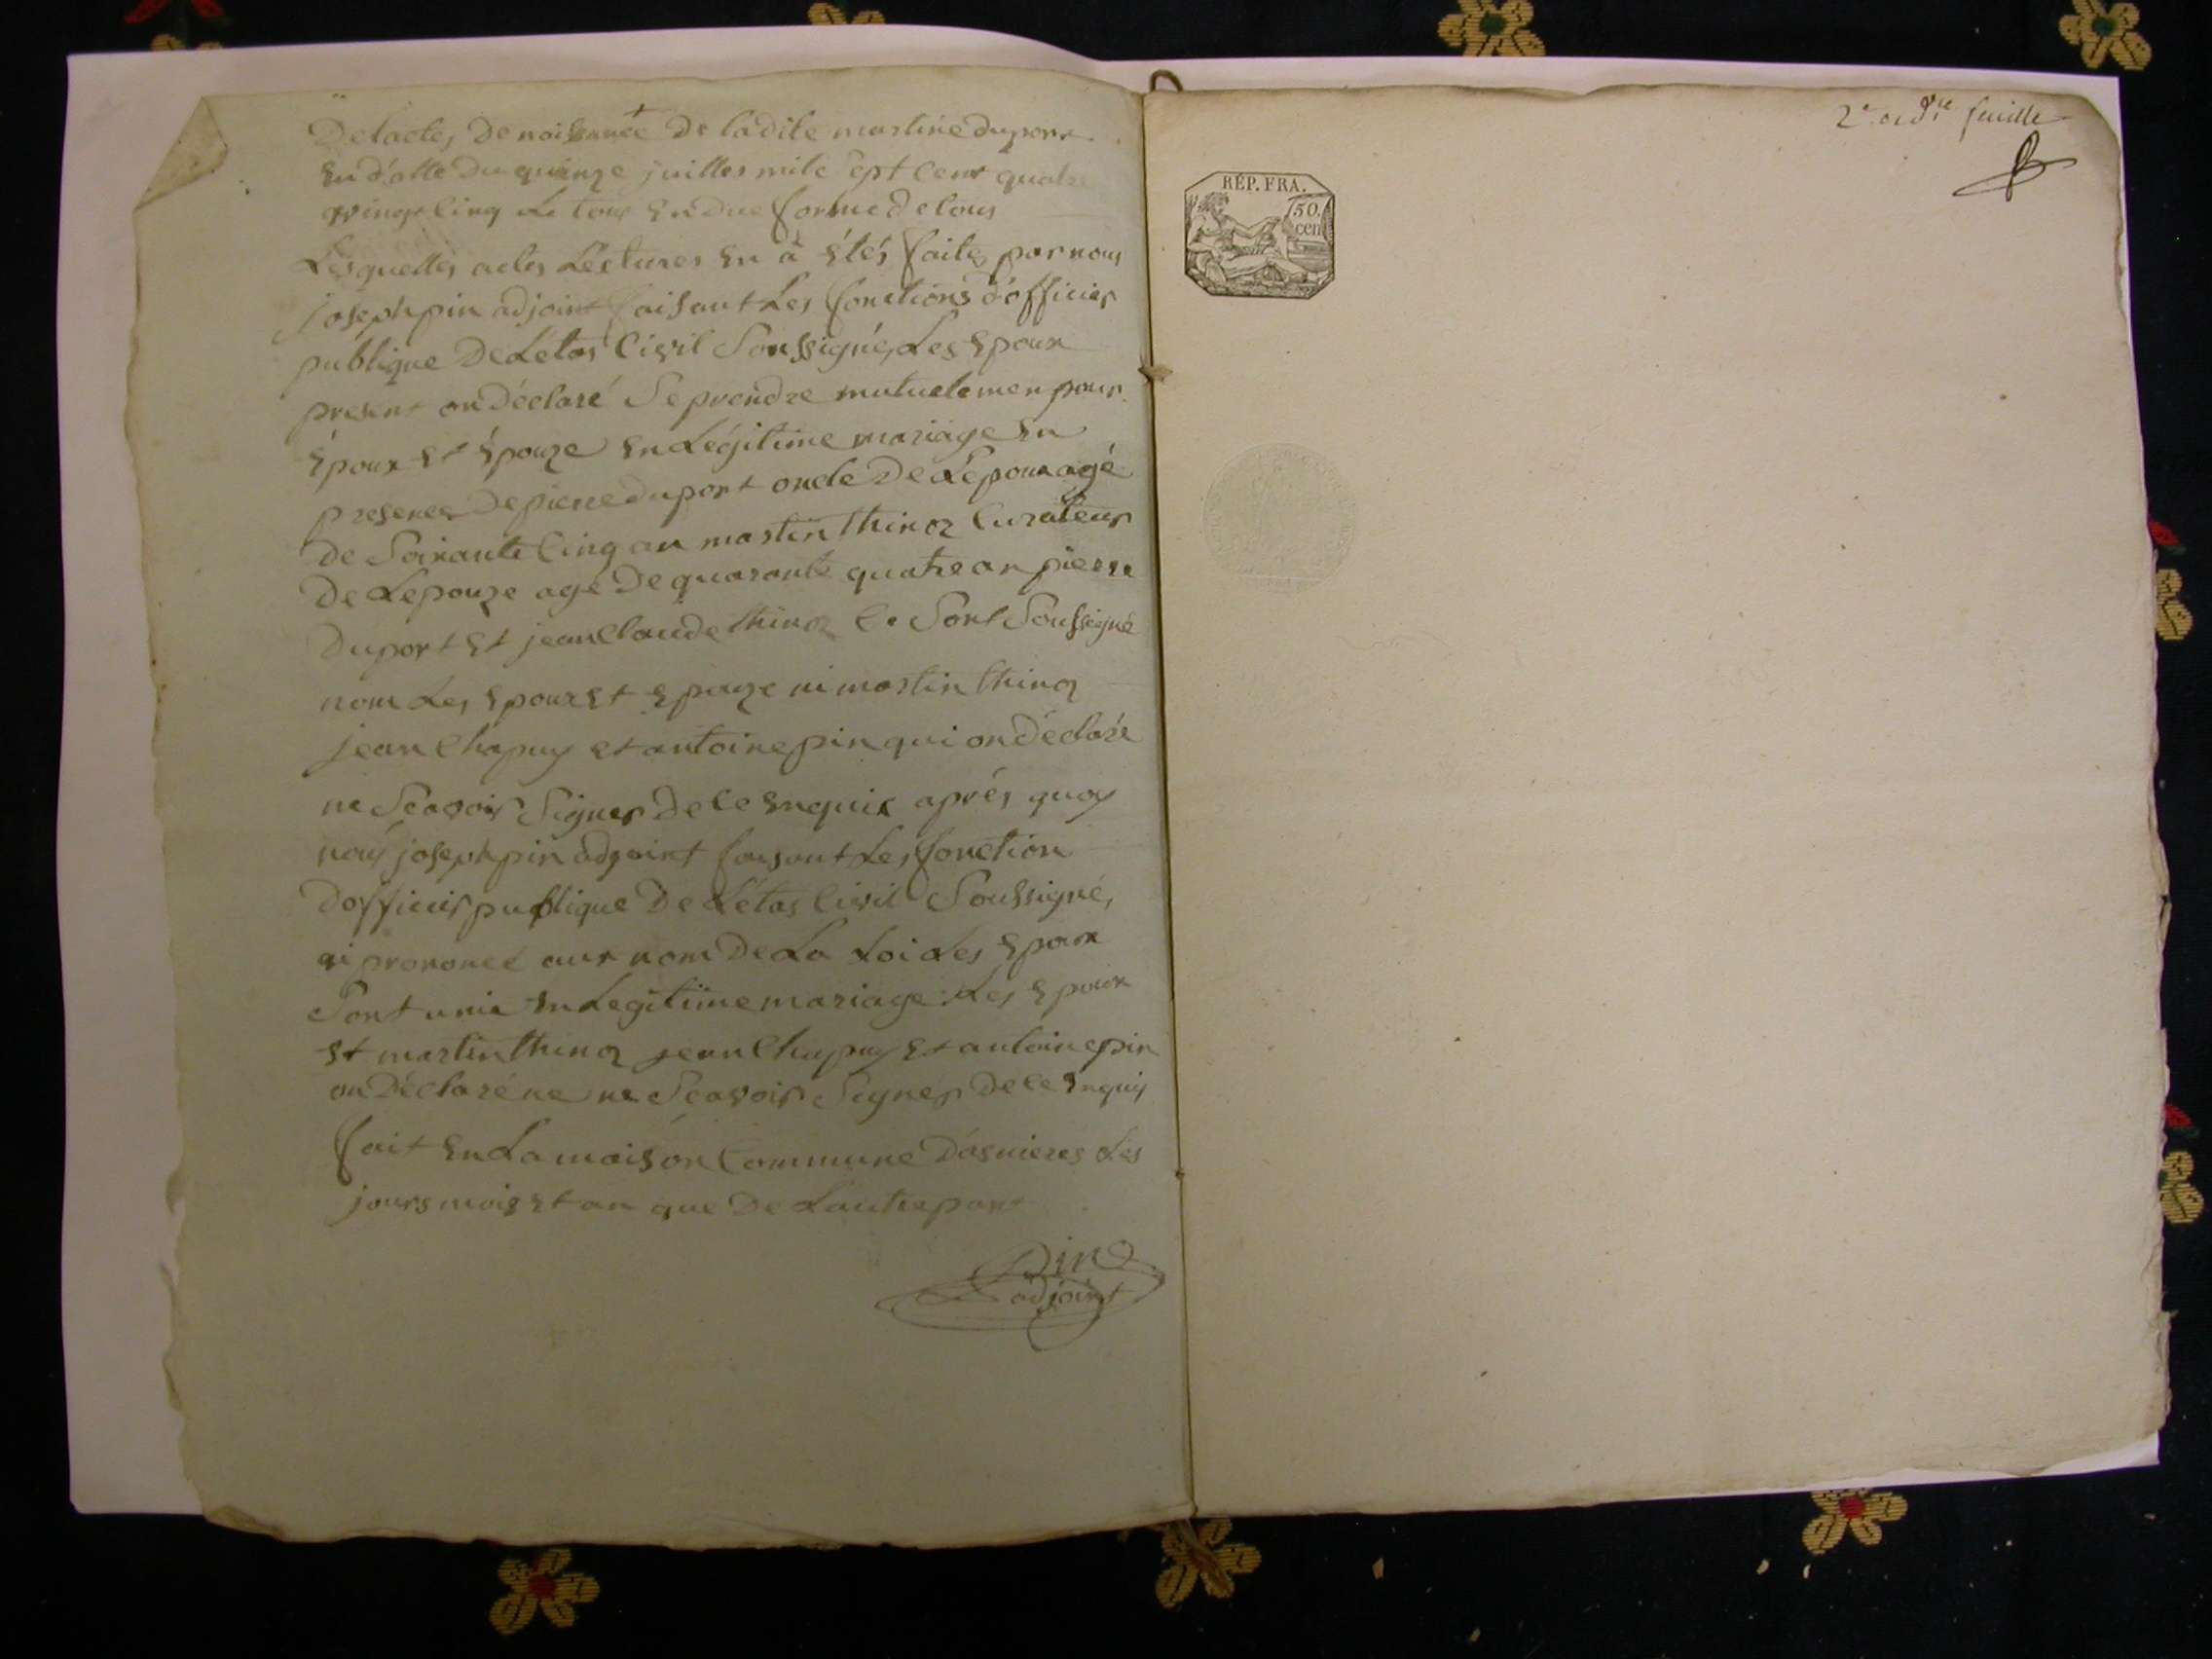 De lactes De naissance De la dite martine duport
En d'atte Du quinze juilles mile sept Cent quatre
vingt Cinq Le tout En due forme de tous
Lesquelles actes Lectures En à Étés faites par nous
joseph pin adjoint faisant Les fonctions d'officier
publique De Létas Civil Soussigné, Les Epoux
present on Déclaré Se prendre mutuelemen pour
Époux Et Épouze En Légitime mariage En
presence De pierre duport oncle De Lépoux agé
De Soixante Cinq an martin thinoz Curateur
De Lepouze agé De quarante quatre an pierre
Duport Et jean Claude thinoz Soussigné
non Les Epoux Et Epouze ni martin thinoz
jean Chapuy et antoine pin qui on Déclaré
ne Scavoir Signer De ce Enquis aprés quoy
nous joseph pin adjoint faisant Les fonction
Dofficier publique De Létas Civil Soussigné,
ai prononcé aux nom De La Loi Les Epoux
Sont unie En Legitime mariage Les Epoux
Et martin thinoz jean Chapuy Et antoine pin
on Déclaré ne ne Scavoir Signer De ce Enquis
fait En La maison Commune D'asnieres Les
jours mois Et an que De Lautre part
Pin
adjoint
2e et dre feuille
RÉP. FRA.
50.
cen